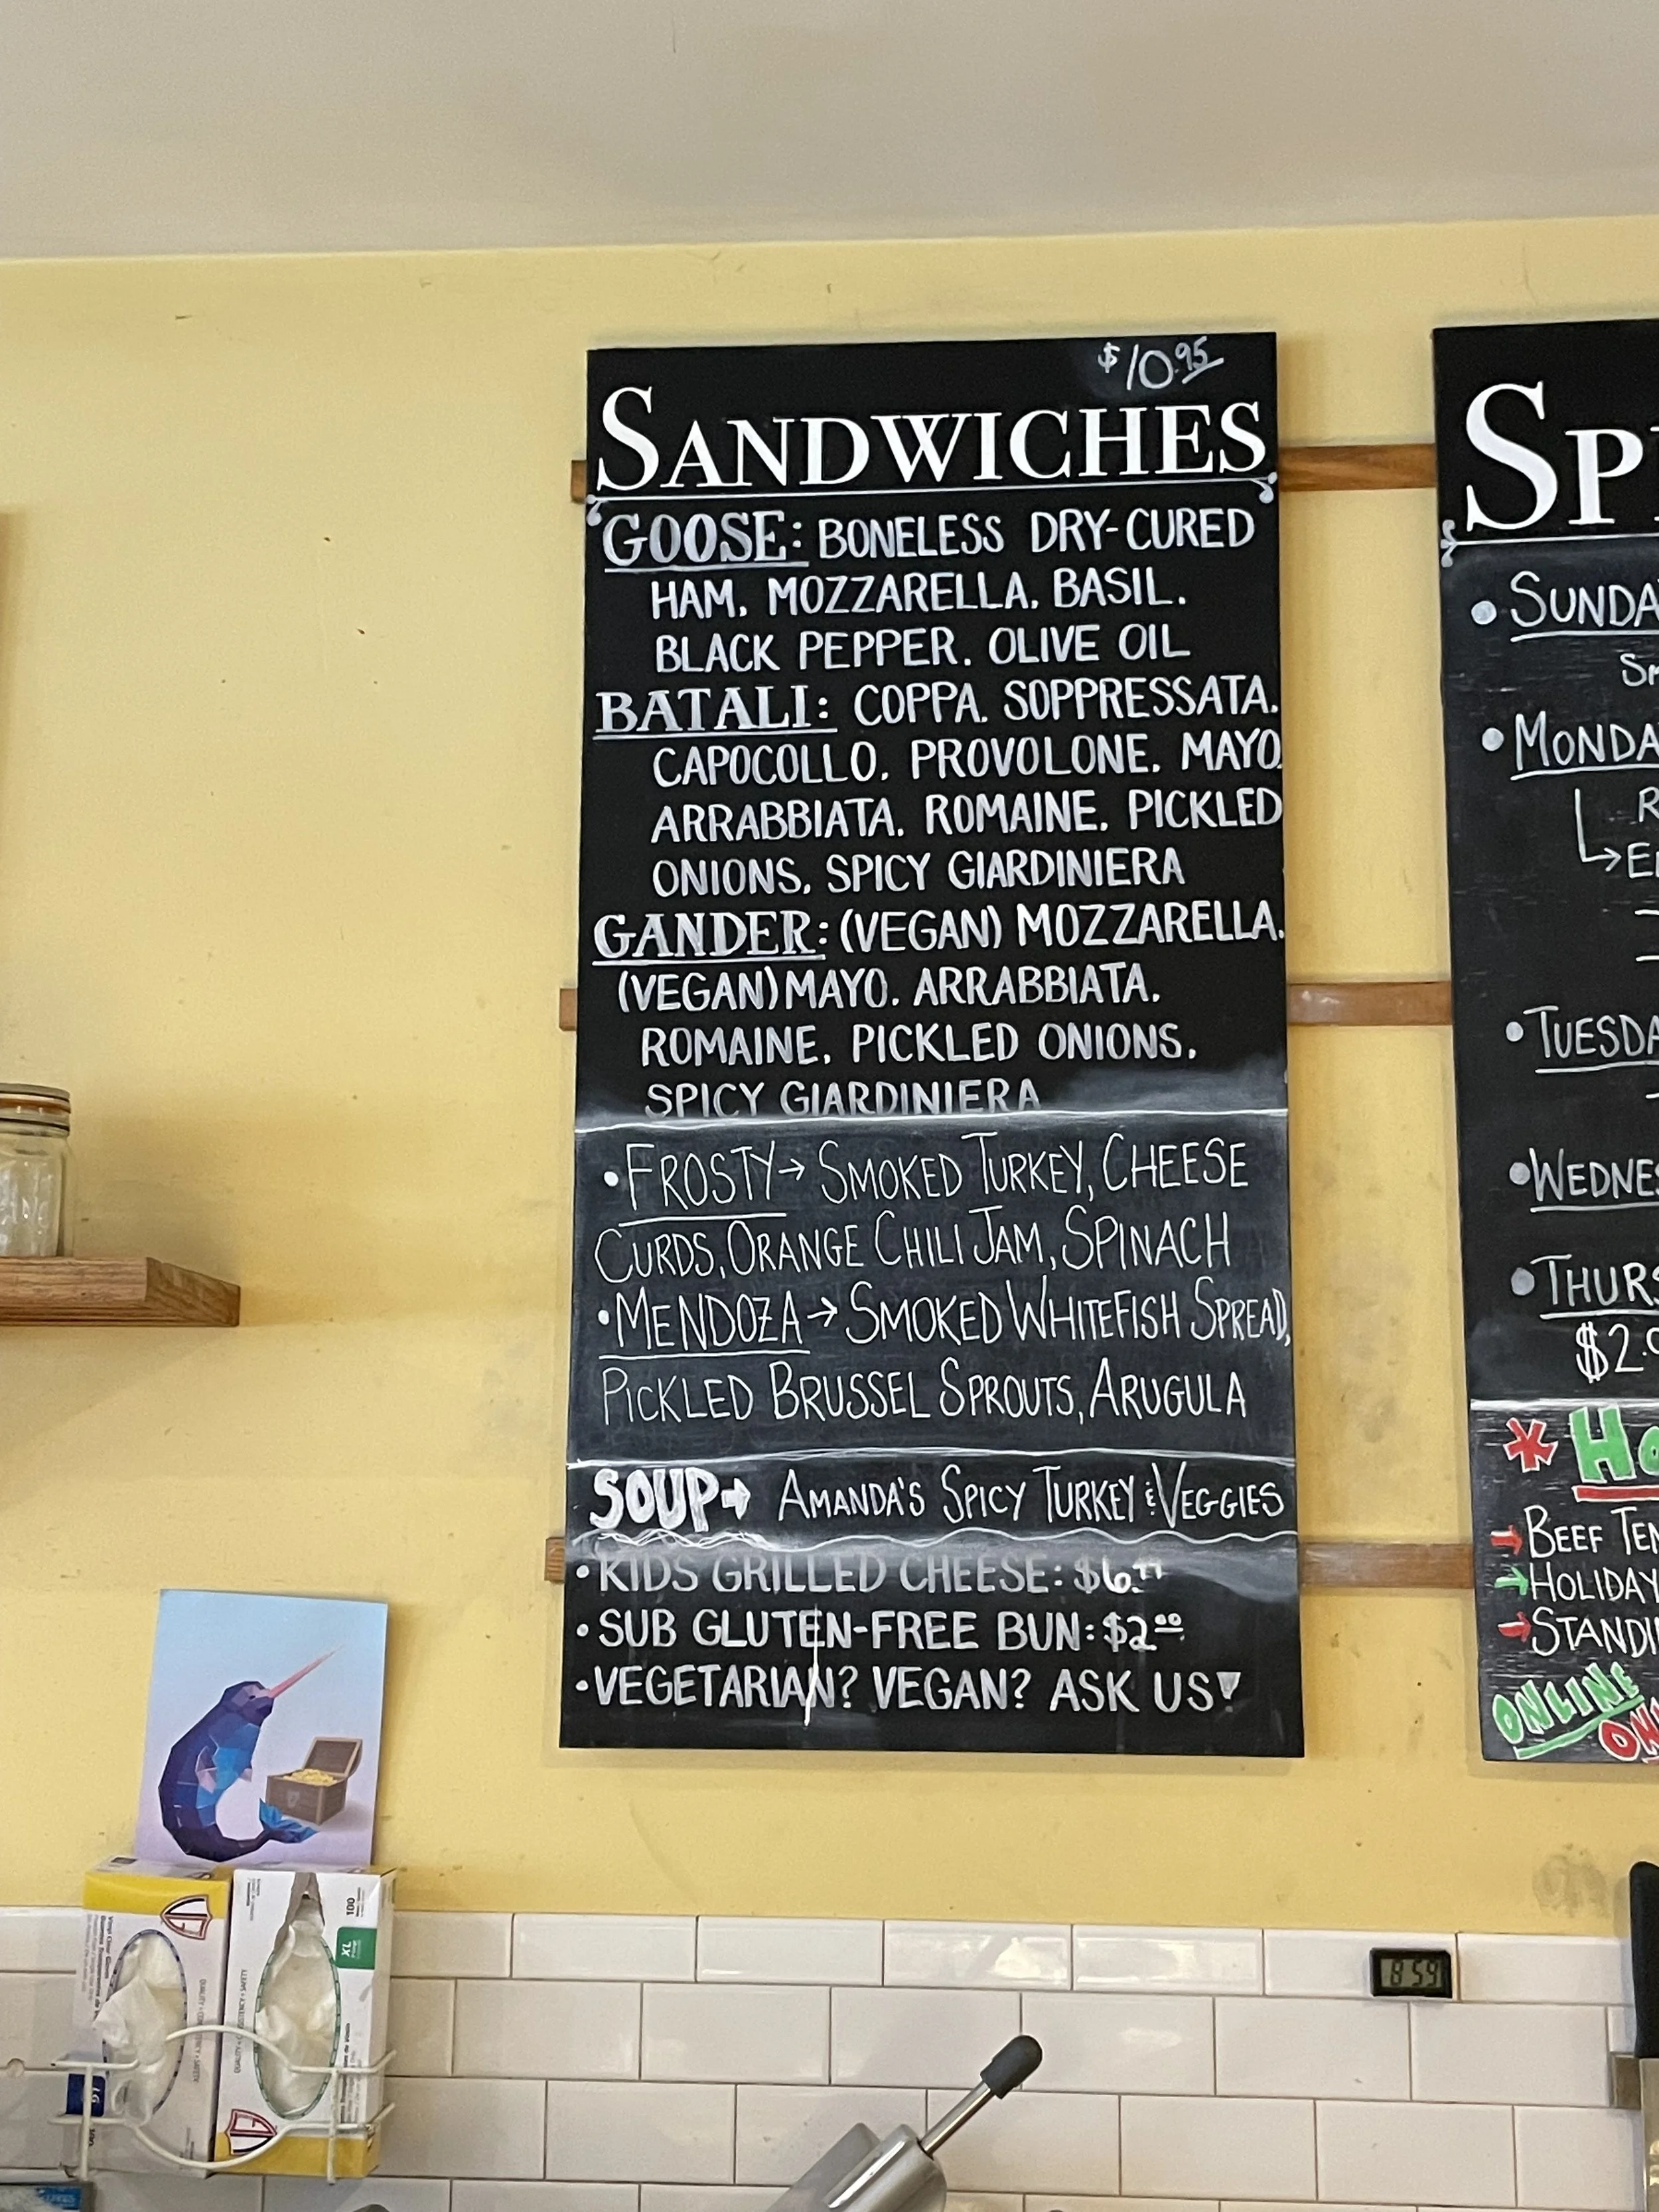 $10.95
SANDWICHES
GOOSE: BONELESS DRY-CURED
HAM, MOZZARELLA, BASIL,
BLACK PEPPER, OLIVE OIL
BATALI: COPPA, SOPPRESSATA,
CAPOCOLLO, PROVOLONE, MAYO,
ARRABBIATA, ROMAINE, PICKLED
ONIONS, SPICY GIARDINIERA
GANDER: (VEGAN) MOZZARELLA,
(VEGAN) MAYO, ARRABBIATA,
ROMAINE, PICKLED ONIONS,
SPICY GIARDINIERA
•FROSTY→ SMOKED TURKEY, CHEESE
CURDS, ORANGE CHILI JAM, SPINACH
•MENDOZA→ SMOKED WHITEFISH SPREAD,
PICKLED BRUSSEL SPROUTS, ARUGULA
SOUP→ AMANDA'S SPICY TURKEY & VEGGIES
•KIDS GRILLED CHEESE:
•SUB GLUTEN-FREE BUN: $2.00
•VEGETARIAN? VEGAN? ASK US!
SP
•SUNDA
SM
•MONDA
R
→EL
•TUESDA
•WEDNES
•THURS
$2.
* HO
→BEEF TEN
→HOLIDAY
→STANDI
ONLINE
ON
100
XL
8:59